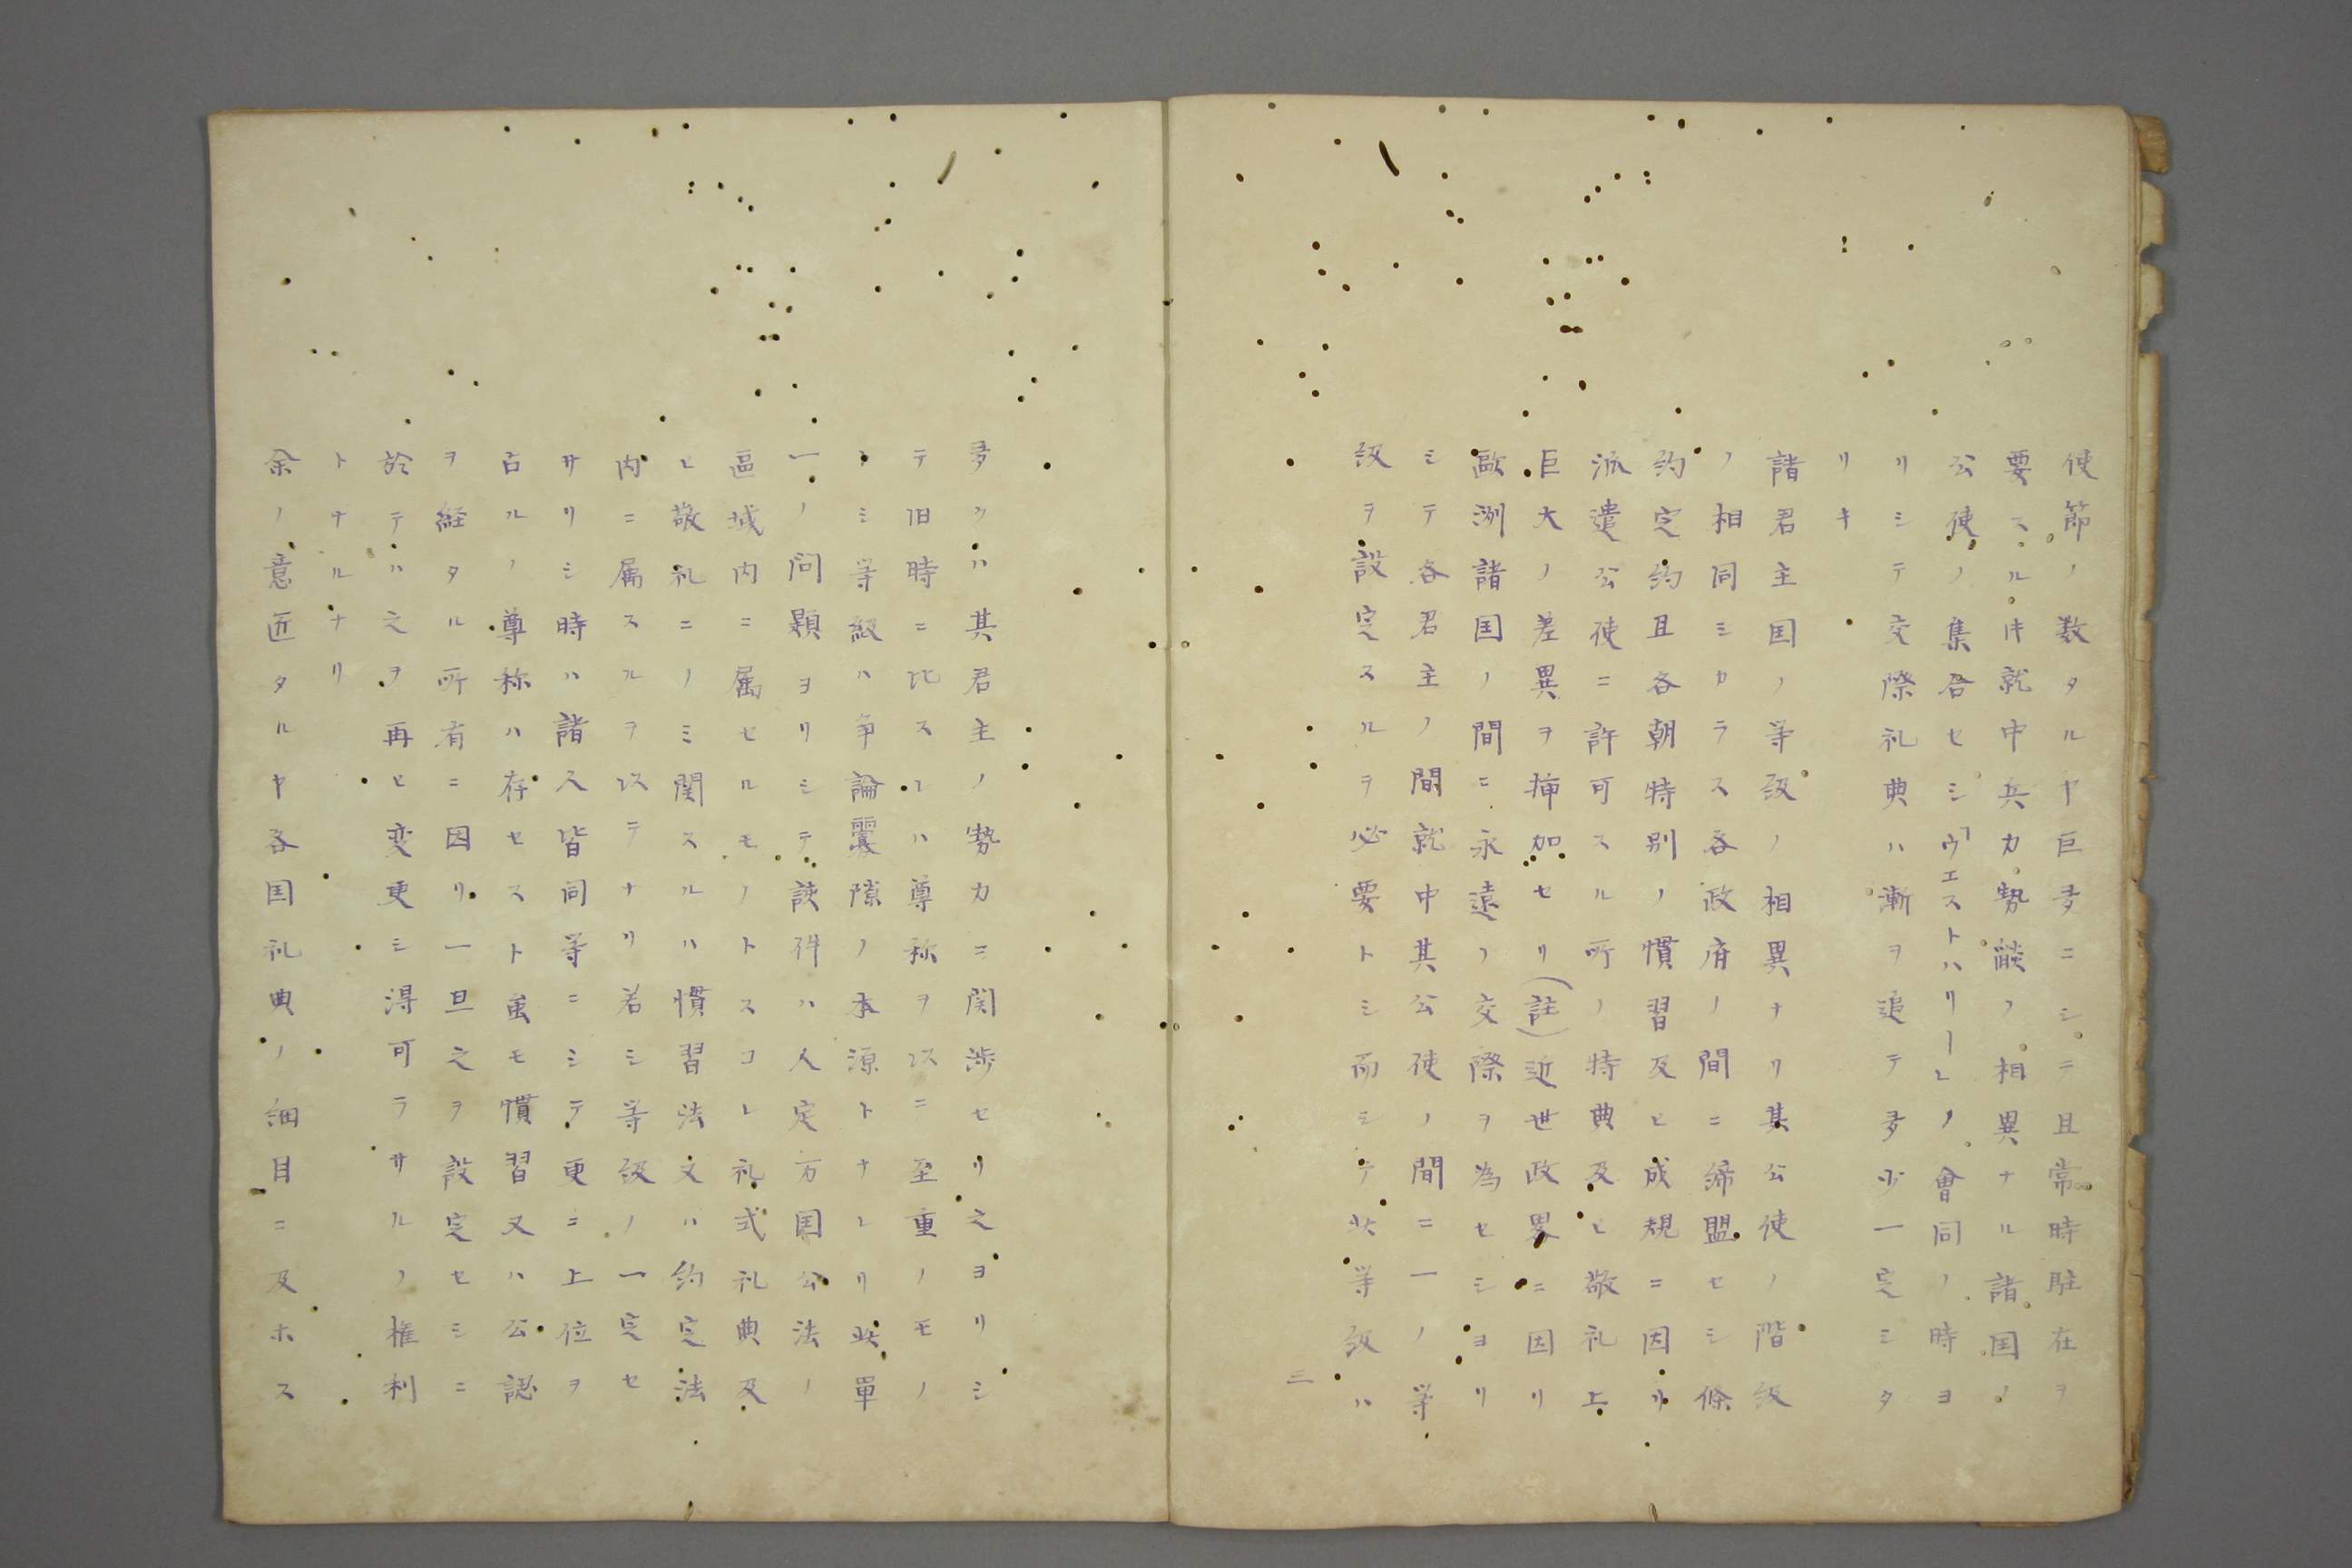 使節ノ数タルヤ巨多ニシテ且常時駐在ヲ
要スル件就中兵力勢諁ノ相異ナル諸国ノ
公使ノ集合セシ「ウエストハリーレノ會同ノ時ヨ
リシテ交際礼典ハ漸ヲ追テ多少一定シタ
リキ
諸君主国ノ等級ノ相異ナリ其公使ノ階級
ノ相同シカラス各政府ノ間ニ締盟セシ條
約定約且各朝特別ノ慣習及ヒ成規ニ因リ
派遣公使ニ許可スル所ノ特典及ヒ敬礼上
巨大ノ差異ヲ挿加セリ(註)近世政畧ニ因リ
歐洲諸国ノ間ニ永遠ノ交際ヲ為セシヨリ
シテ各君主ノ間就中其公使ノ間ニ一ノ等
級ヲ設定スルヲ必要トシ而シテ此等級ハ
三
多クハ其君主ノ勢力ニ関渉セリ之ヨリシ
テ旧時ニ比スレハ尊称ヲ以ニ至重ノモノ
トシ等級ハ争論釁隙ノ本源トナレリ此單
一ノ問題ヨリシテ該件ハ人定万国公法ノ
區域内ニ属セルモノトスコレ礼式礼典及
ヒ敬礼ニノミ関スルハ慣習法又ハ約定法
内ニ属スルヲ以テナリ若シ等級ノ一定セ
サリシ時ハ諸人皆同等ニシテ更ニ上位ヲ
占ルノ尊称ハ存セスト虽モ慣習又ハ公認
ヲ経タル所有ニ因リ一旦之ヲ設定セシニ
於テハ之ヲ再ヒ変更シ得可ラサルノ権利
トナルナリ
余ノ意匠タルヤ各国礼典ノ細目ニ及ホス